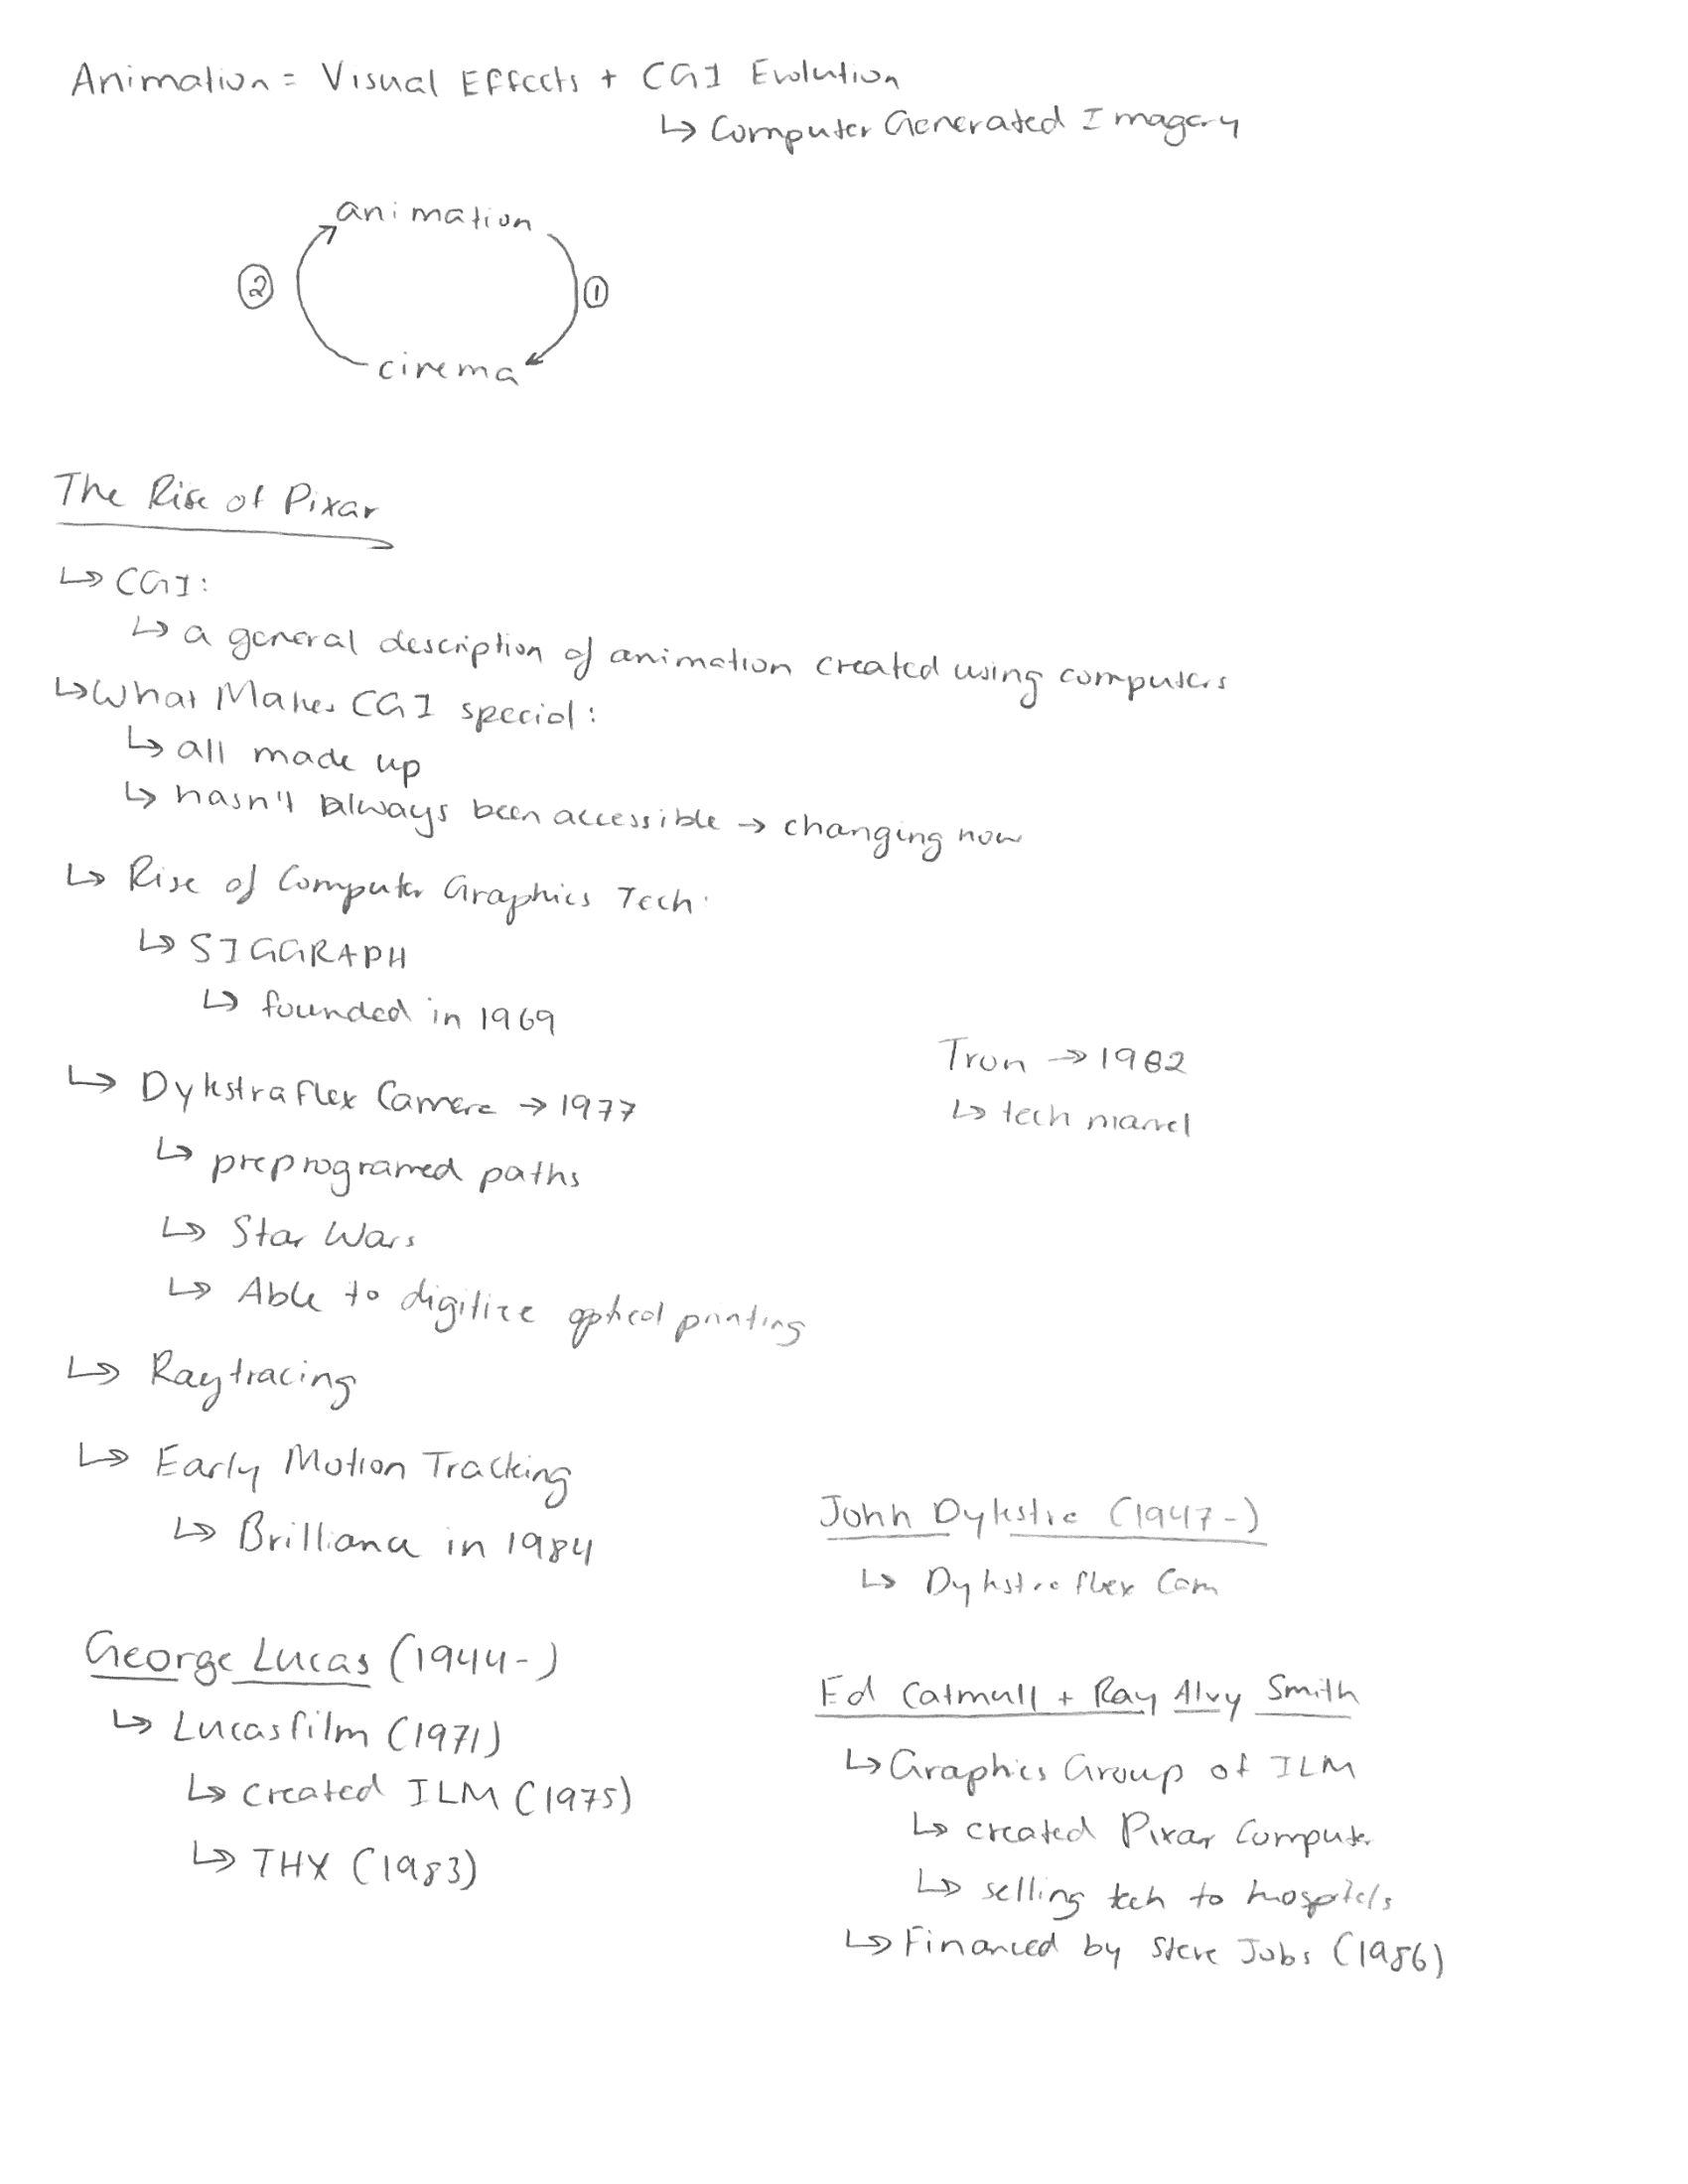 Animation = Visual Effects + CGI Evolution
↳ Computer Generated Imagery
animation
②
①
cinema
The Rise of Pixar
↳ CGI:
↳ a general description of animation created using computers
↳ What Makes CGI special:
↳ all made up
↳ hasn't always been accessible → changing now
↳ Rise of Computer Graphics Tech:
↳ SIGGRAPH
↳ founded in 1969
Tron → 1982
↳ tech marvel
↳ Dykstraflex Camera → 1977
↳ preprogramed paths
↳ Star Wars
↳ Able to digitize optical printing
↳ Raytracing
↳ Early Motion Tracking
↳ Brilliance in 1984
John Dykstra (1947-)
↳ Dykstraflex Cam
George Lucas (1944-)
↳ Lucasfilm (1971)
↳ created ILM (1975)
↳ THX (1983)
Ed Catmull + Ray Alvy Smith
↳ Graphics Group of ILM
↳ created Pixar Computer
↳ selling tech to hospitals
↳ Financed by Steve Jobs (1986)